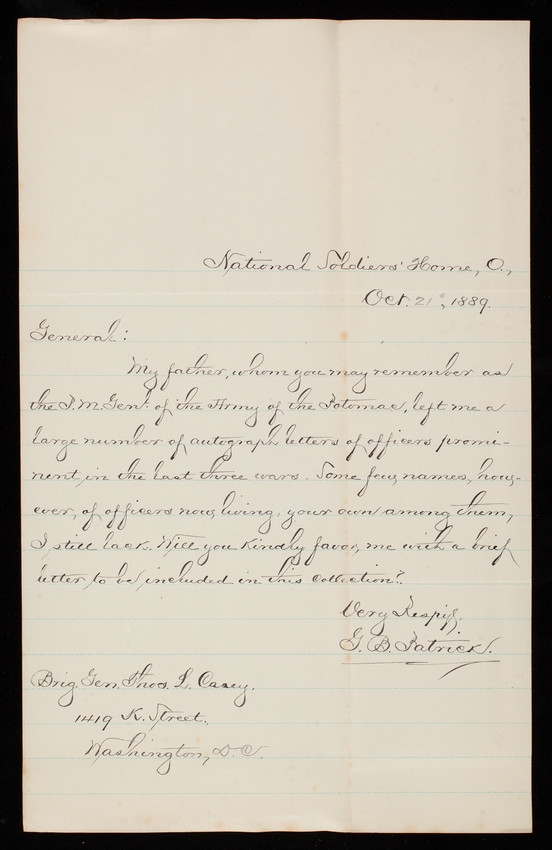 National Soldiers' Home, O.,
Oct. 21st, 1889.
General:
My father, whom you may remember as
the P. M. Genl. of the Army of the Potomac, left me a
large number of autograph letters of officers promi-
nent in the last three wars. Some few names, how-
ever, of officers now living, your own among them,
I still lack. Will you kindly favor me with a brief
letter to be included in this collection?
Very Respy.
G. B. Patrick.
Brig. Gen. Thos. L. Casey.
1419 K. Street.
Washington, D. C.